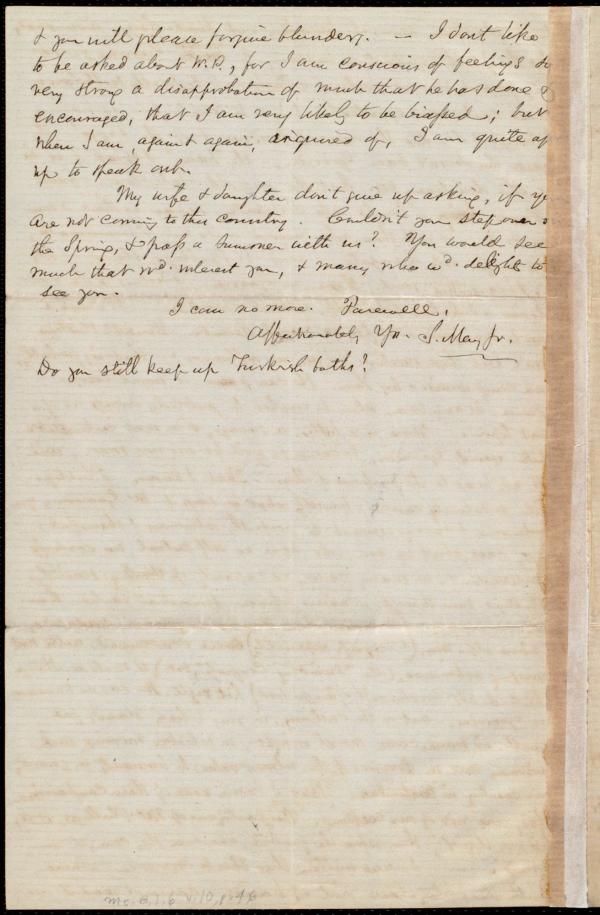 & you will please forgive blunders. — I don't like
to be asked about W.P., for I am conscious of feelings so
very strong a disapprobation of much that he has done &
encouraged, that I am very likely to be biassed; but
when I am, again & again, inquired of, I am quite ap
up to speak out.
My wife & daughter don't give up asking, if yo
are not coming to this country. Couldn't you step over
the Spring, & pass a Summer with us? You would see
much that wd. interest you, & many who wd. delight to
see you.
I can no more. Farewell,
Affectionately Yrs. S. May, Jr.
Do you still keep up Turkish baths?
Ms. B.1.6 v.10, p.46